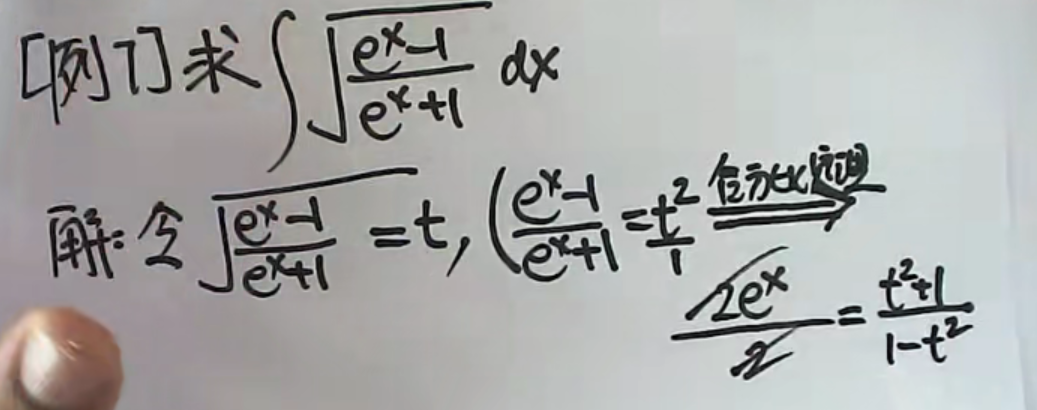 [例7] 求 ∫ √((eˣ-1)/(eˣ+1)) dx
解: 令 √((eˣ-1)/(eˣ+1)) = t, ((eˣ-1)/(eˣ+1) = t²/1 合分比定理 ⟹
2eˣ/2 = (t²+1)/(1-t²)